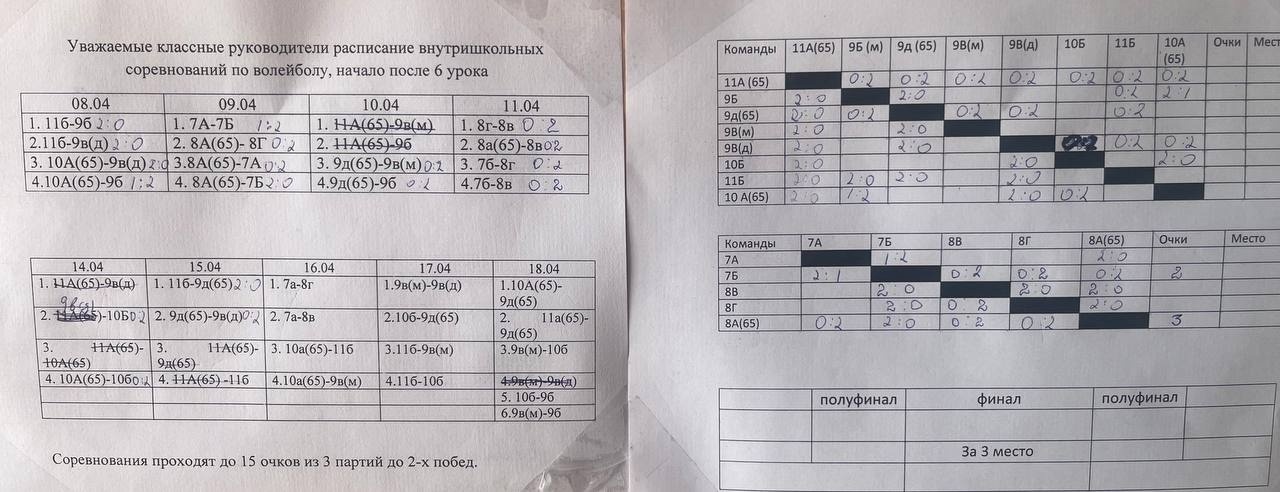 Уважаемые классные руководители расписание внутришкольных
соревнований по волейболу, начало после 6 урока
08.04 09.04 10.04 11.04
1. 11б-9б 2:0 1. 7А-7Б 1:2 1. 11А(65)-9в(м) 1. 8г-8в 0:2
2.11б-9в(д) 2:0 2. 8А(65)- 8Г 0:2 2. 11А(65)-9б 2. 8а(65)-8в 0:2
3. 10А(65)-9в(д) 2:0 3.8А(65)-7А 0:2 3. 9д(65)-9в(м) 0:2 3. 7б-8г 0:2
4.10А(65)-9б 1:2 4. 8А(65)-7Б 2:0 4.9д(65)-9б 0:2 4.7б-8в 0:2
14.04 15.04 16.04 17.04 18.04
1. 11А(65)-9в(д) 1. 11б-9д(65) 2:0 1. 7а-8г 1.9в(м)-9в(д) 1.10А(65)-
9д(65)
2. 11А(65)-10Б 0:2 2. 9д(65)-9в(д) 0:2 2. 7а-8в 2.10б-9д(65) 2. 11а(65)-
9д(65)
3. 11А(65)- 3. 11А(65)- 3. 10а(65)-11б 3.11б-9в(м) 3.9в(м)-10б
10А(65) 9д(65)
4. 10А(65)-10б 0:2 4. 11А(65) -11б 4.10а(65)-9в(м) 4.11б-10б 4.9в(м)-9в(д)
5. 10б-9б
6.9в(м)-9б
Соревнования проходят до 15 очков из 3 партий до 2-х побед.
Команды 11А(65) 9Б (м) 9д (65) 9В(м) 9В(д) 10Б 11Б 10А Очки Мест
(65)
11А (65) 0:2 0:2 0:2 0:2 0:2 0:2 0:2
9Б 2:0 2:0 0:2 2:1
9д(65) 2:0 0:2 0:2 0:2 0:2
9В(м) 2:0 2:0
9В(д) 2:0 2:0 0:2 0:2 0:2
10Б 2:0 2:0 2:0
11Б 2:0 2:0 2:0 2:0
10 А(65) 2:0 1:2 2:0 0:2
Команды 7А 7Б 8В 8Г 8А(65) Очки Место
7А 1:2 2:0
7Б 2:1 0:2 0:2 0:2 2
8В 2:0 2:0 2:0
8Г 2:0 0:2 2:0
8А(65) 0:2 2:0 0:2 0:2 3
полуфинал финал полуфинал
За 3 место